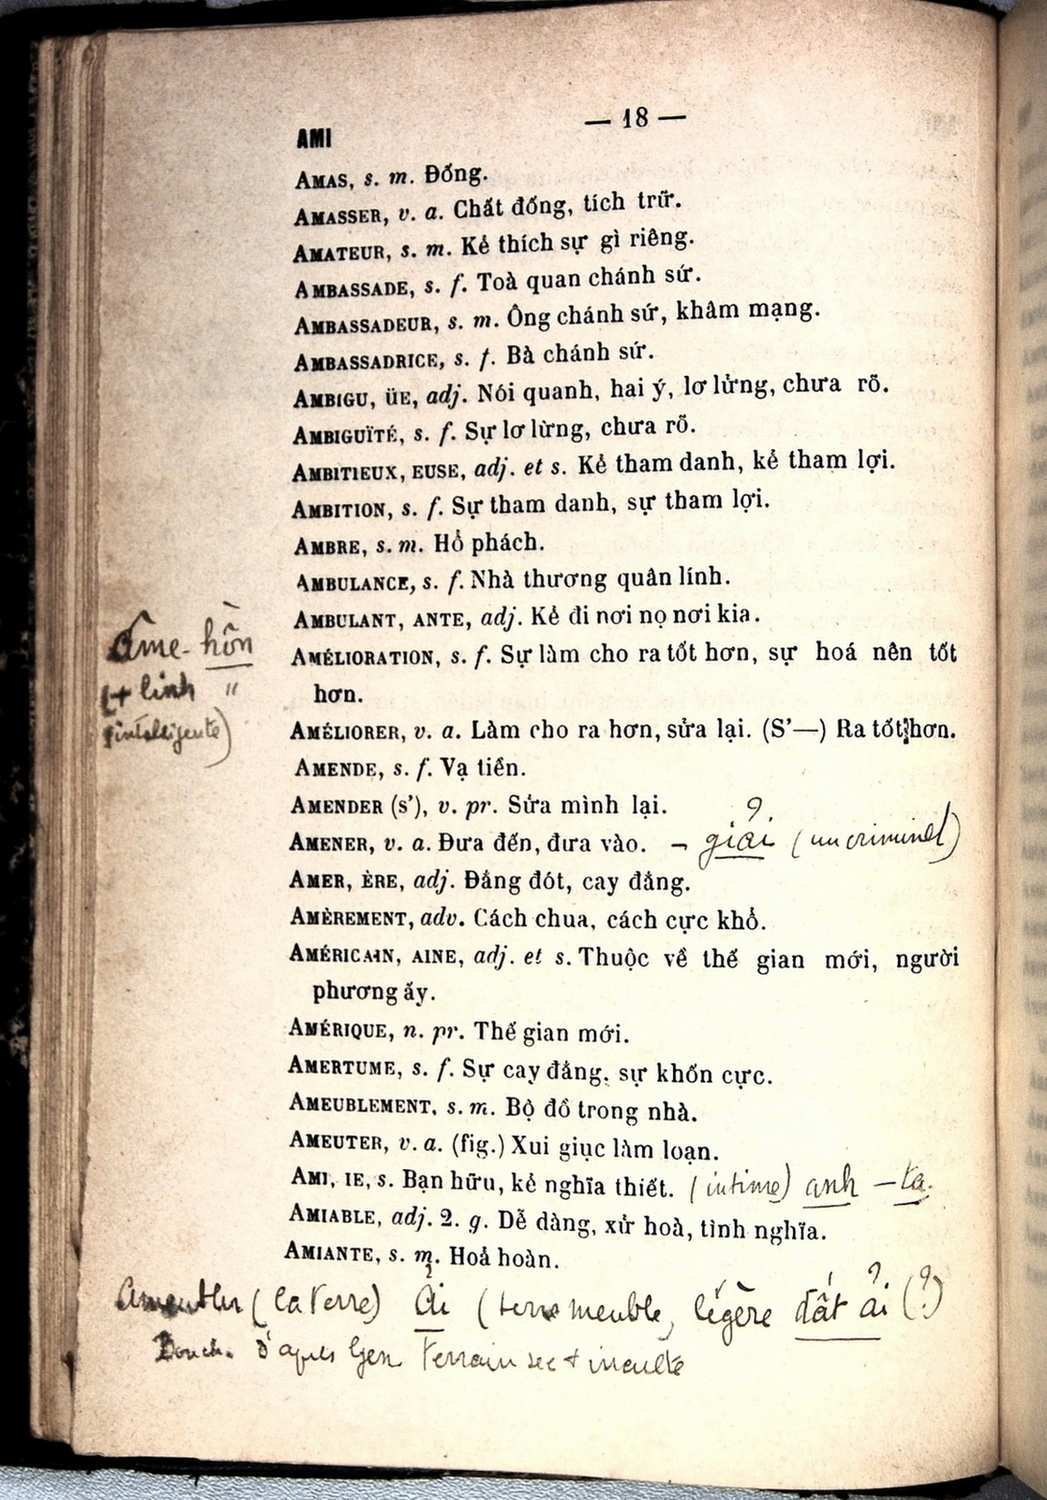 AMI
— 18 —
AMAS, s. m. Đống.
AMASSER, v. a. Chất đống, tích trữ.
AMATEUR, s. m. Kẻ thích sự gì riêng.
AMBASSADE, s. f. Toà quan chánh sứ.
AMBASSADEUR, s. m. Ông chánh sứ, khâm mạng.
AMBASSADRICE, s. f. Bà chánh sứ.
AMBIGU, ÜE, adj. Nói quanh, hai ý, lơ lửng, chưa rõ.
AMBIGUÏTÉ, s. f. Sự lơ lừng, chưa rõ.
AMBITIEUX, EUSE, adj. et s. Kẻ tham danh, kẻ tham lợi.
AMBITION, s. f. Sự tham danh, sự tham lợi.
AMBRE, s. m. Hổ phách.
AMBULANCE, s. f. Nhà thương quân lính.
AMBULANT, ANTE, adj. Kẻ đi nơi nọ nơi kia.
AMÉLIORATION, s. f. Sự làm cho ra tốt hơn, sự hoá nên tốt
hơn.
AMÉLIORER, v. a. Làm cho ra hơn, sửa lại. (S'—) Ra tốt hơn.
AMENDE, s. f. Vạ tiền.
AMENDER (S'), v. pr. Sửa mình lại.
AMENER, v. a. Đưa đến, đưa vào. – giải (un criminel)
AMER, ÈRE, adj. Đắng đót, cay đắng.
AMÈREMENT, adv. Cách chua, cách cực khổ.
AMÉRICAIN, AINE, adj. et s. Thuộc về thế gian mới, người
phương ấy.
AMÉRIQUE, n. pr. Thế gian mới.
AMERTUME, s. f. Sự cay đắng, sự khốn cực.
AMEUBLEMENT, s. m. Bộ đồ trong nhà.
AMEUTER, v. a. (fig.) Xui giục làm loạn.
AMI, IE, s. Bạn hữu, kẻ nghĩa thiết. (intime) anh – ta.
AMIABLE, adj. 2. g. Dễ dàng, xử hoà, tình nghĩa.
AMIANTE, s. m. Hoả hoàn.
âme - hồn
(+ linh "
intelligente)
(la terre) ải (terre meuble, légère đất ải (?)
d'après Gen. terrain sec + inculte